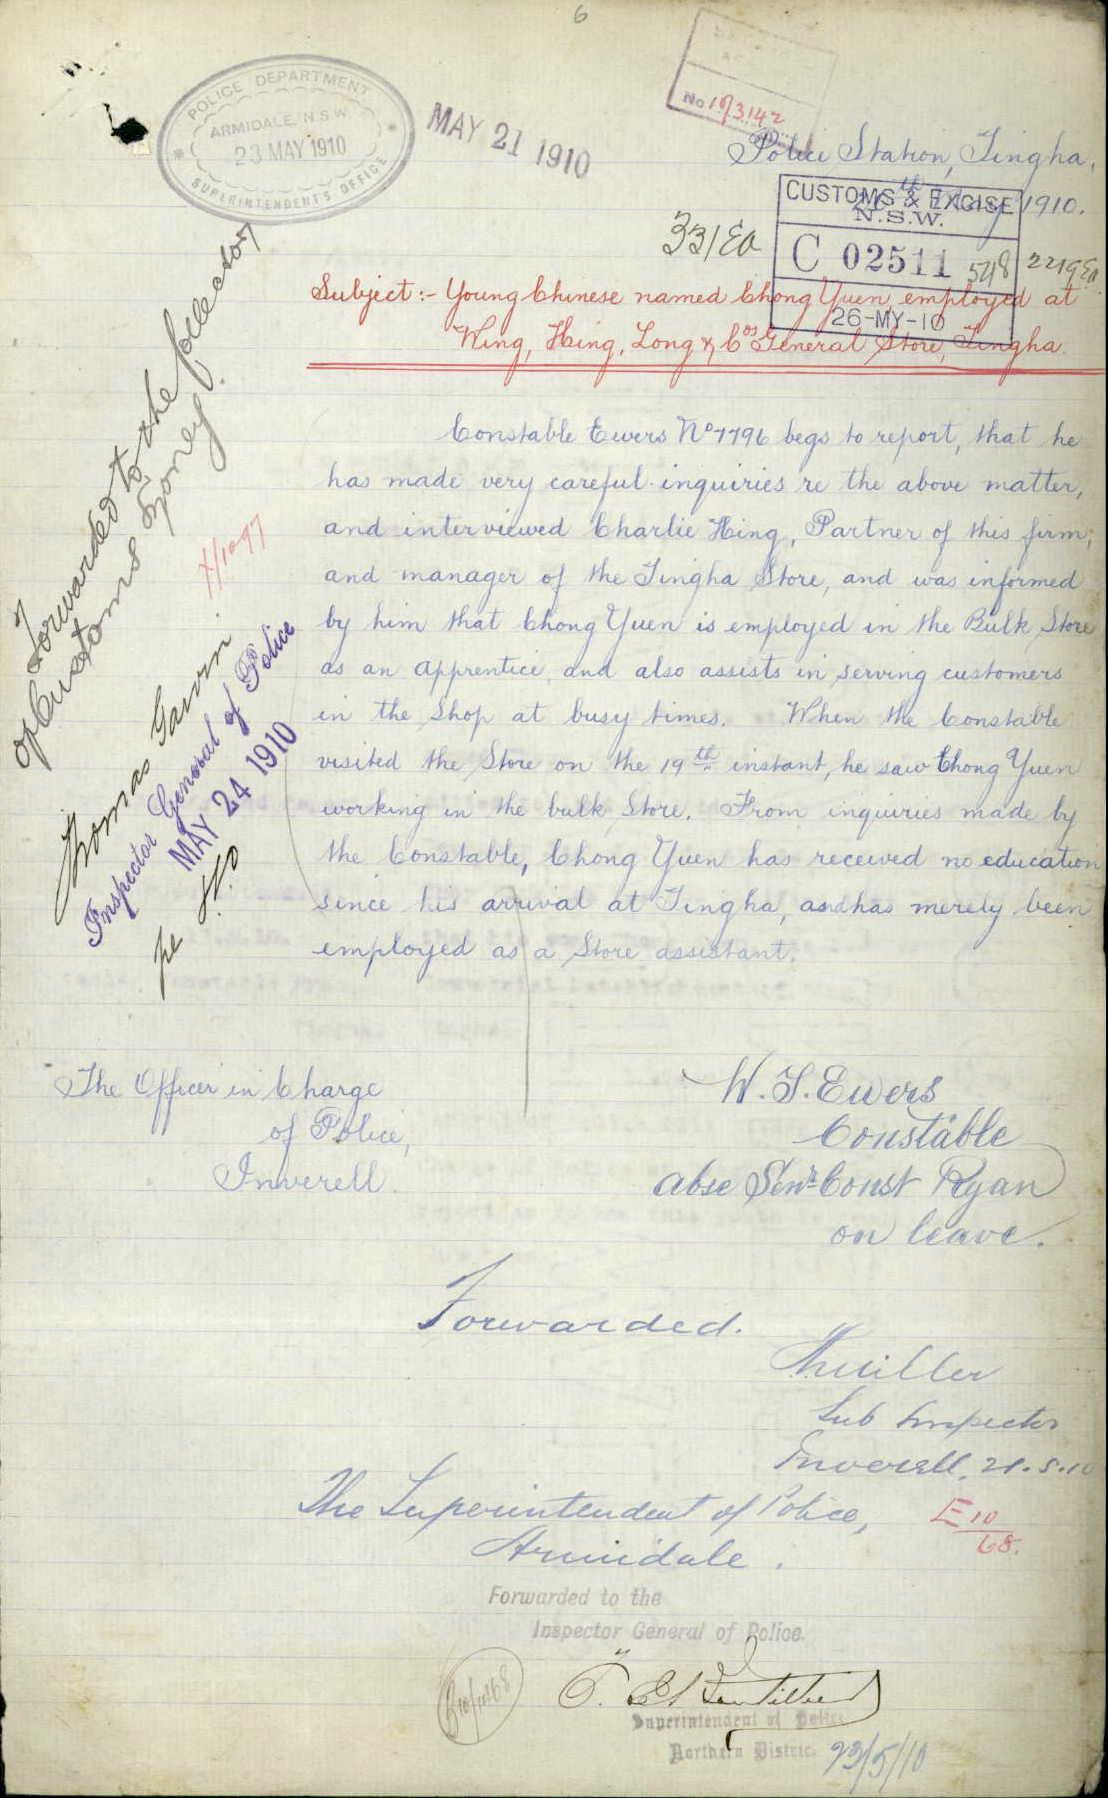 6
POLICE DEPARTMENT
ARMIDALE, N.S.W.
23 MAY 1910
SUPERINTENDENT'S OFFICE
MAY 21 1910
No 10/3142
Police Station, Tingha,
20th May 1910.
CUSTOMS & EXCISE
N.S.W.
C 02511
26-MY-10
331/Ea
Subject:- Young Chinese named Chong Yuen employed at
Wing, Hing, Long & Cos General Store, Tingha.
Constable Ewers No 7796 begs to report, that he
has made very careful inquiries re the above matter,
and interviewed Charlie Hing, Partner of this firm,
and manager of the Tingha Store, and was informed
by him that Chong Yuen is employed in the Bulk Store
as an apprentice, and also assists in serving customers
in the Shop at busy times. When the Constable
visited the Store on the 19th instant, he saw Chong Yuen
working in the bulk Store. From inquiries made by
the Constable, Chong Yuen has received no education
since his arrival at Tingha, and has merely been
employed as a Store assistant.
Forwarded to the Collector
of Customs Sydney.
Thomas Garvin
Inspector General of Police
MAY 24 1910
The Officer in Charge
of Police,
Inverell
W. T. Ewers
Constable
absc Senr Const Ryan
on leave.
Forwarded.
Sub Inspector
Inverell. 21.5.10
The Superintendent of Police,
Armidale.
E 10
68.
Forwarded to the
Inspector General of Police.
Superintendent of Police
Northern District
23/5/10